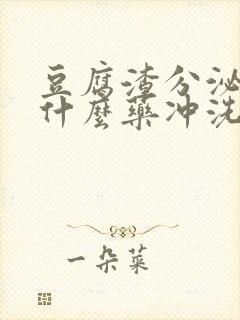 豆腐渣分泌
什麼藥冲洗
一朵菜